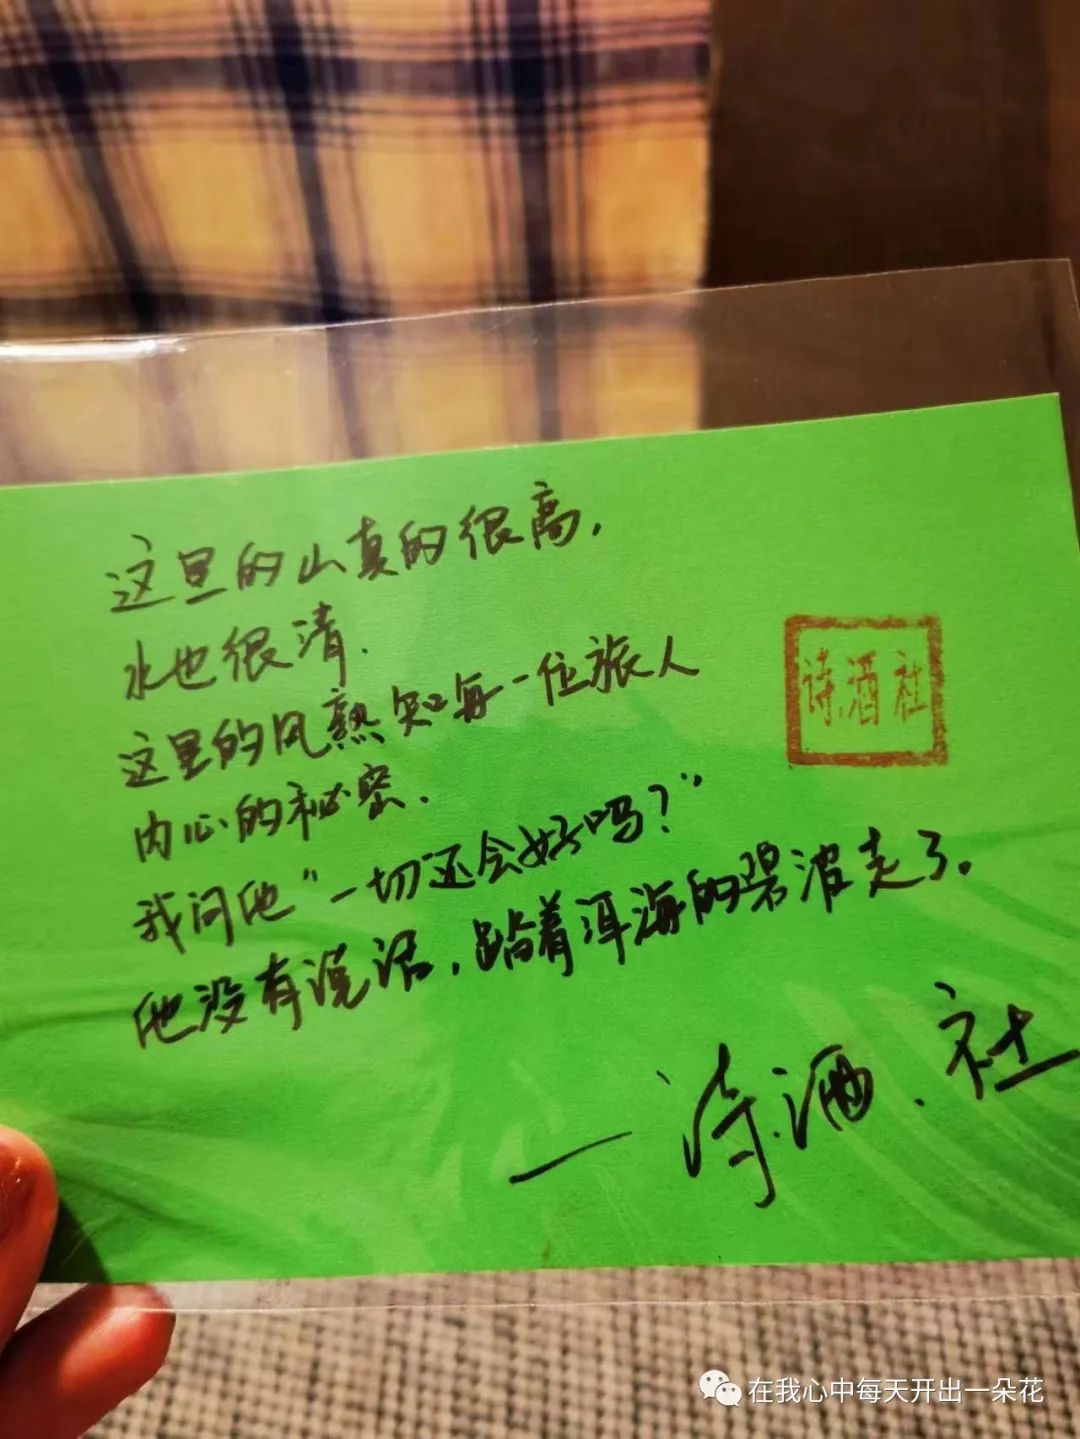 这里的山真的很高,
水也很清.
这里的风熟知每一位旅人
内心的秘密.
我问他“一切还会好吗?”
他没有说话,踏着洱海的碧波走了。
诗.酒.社
—诗.酒.社
在我心中每天开出一朵花